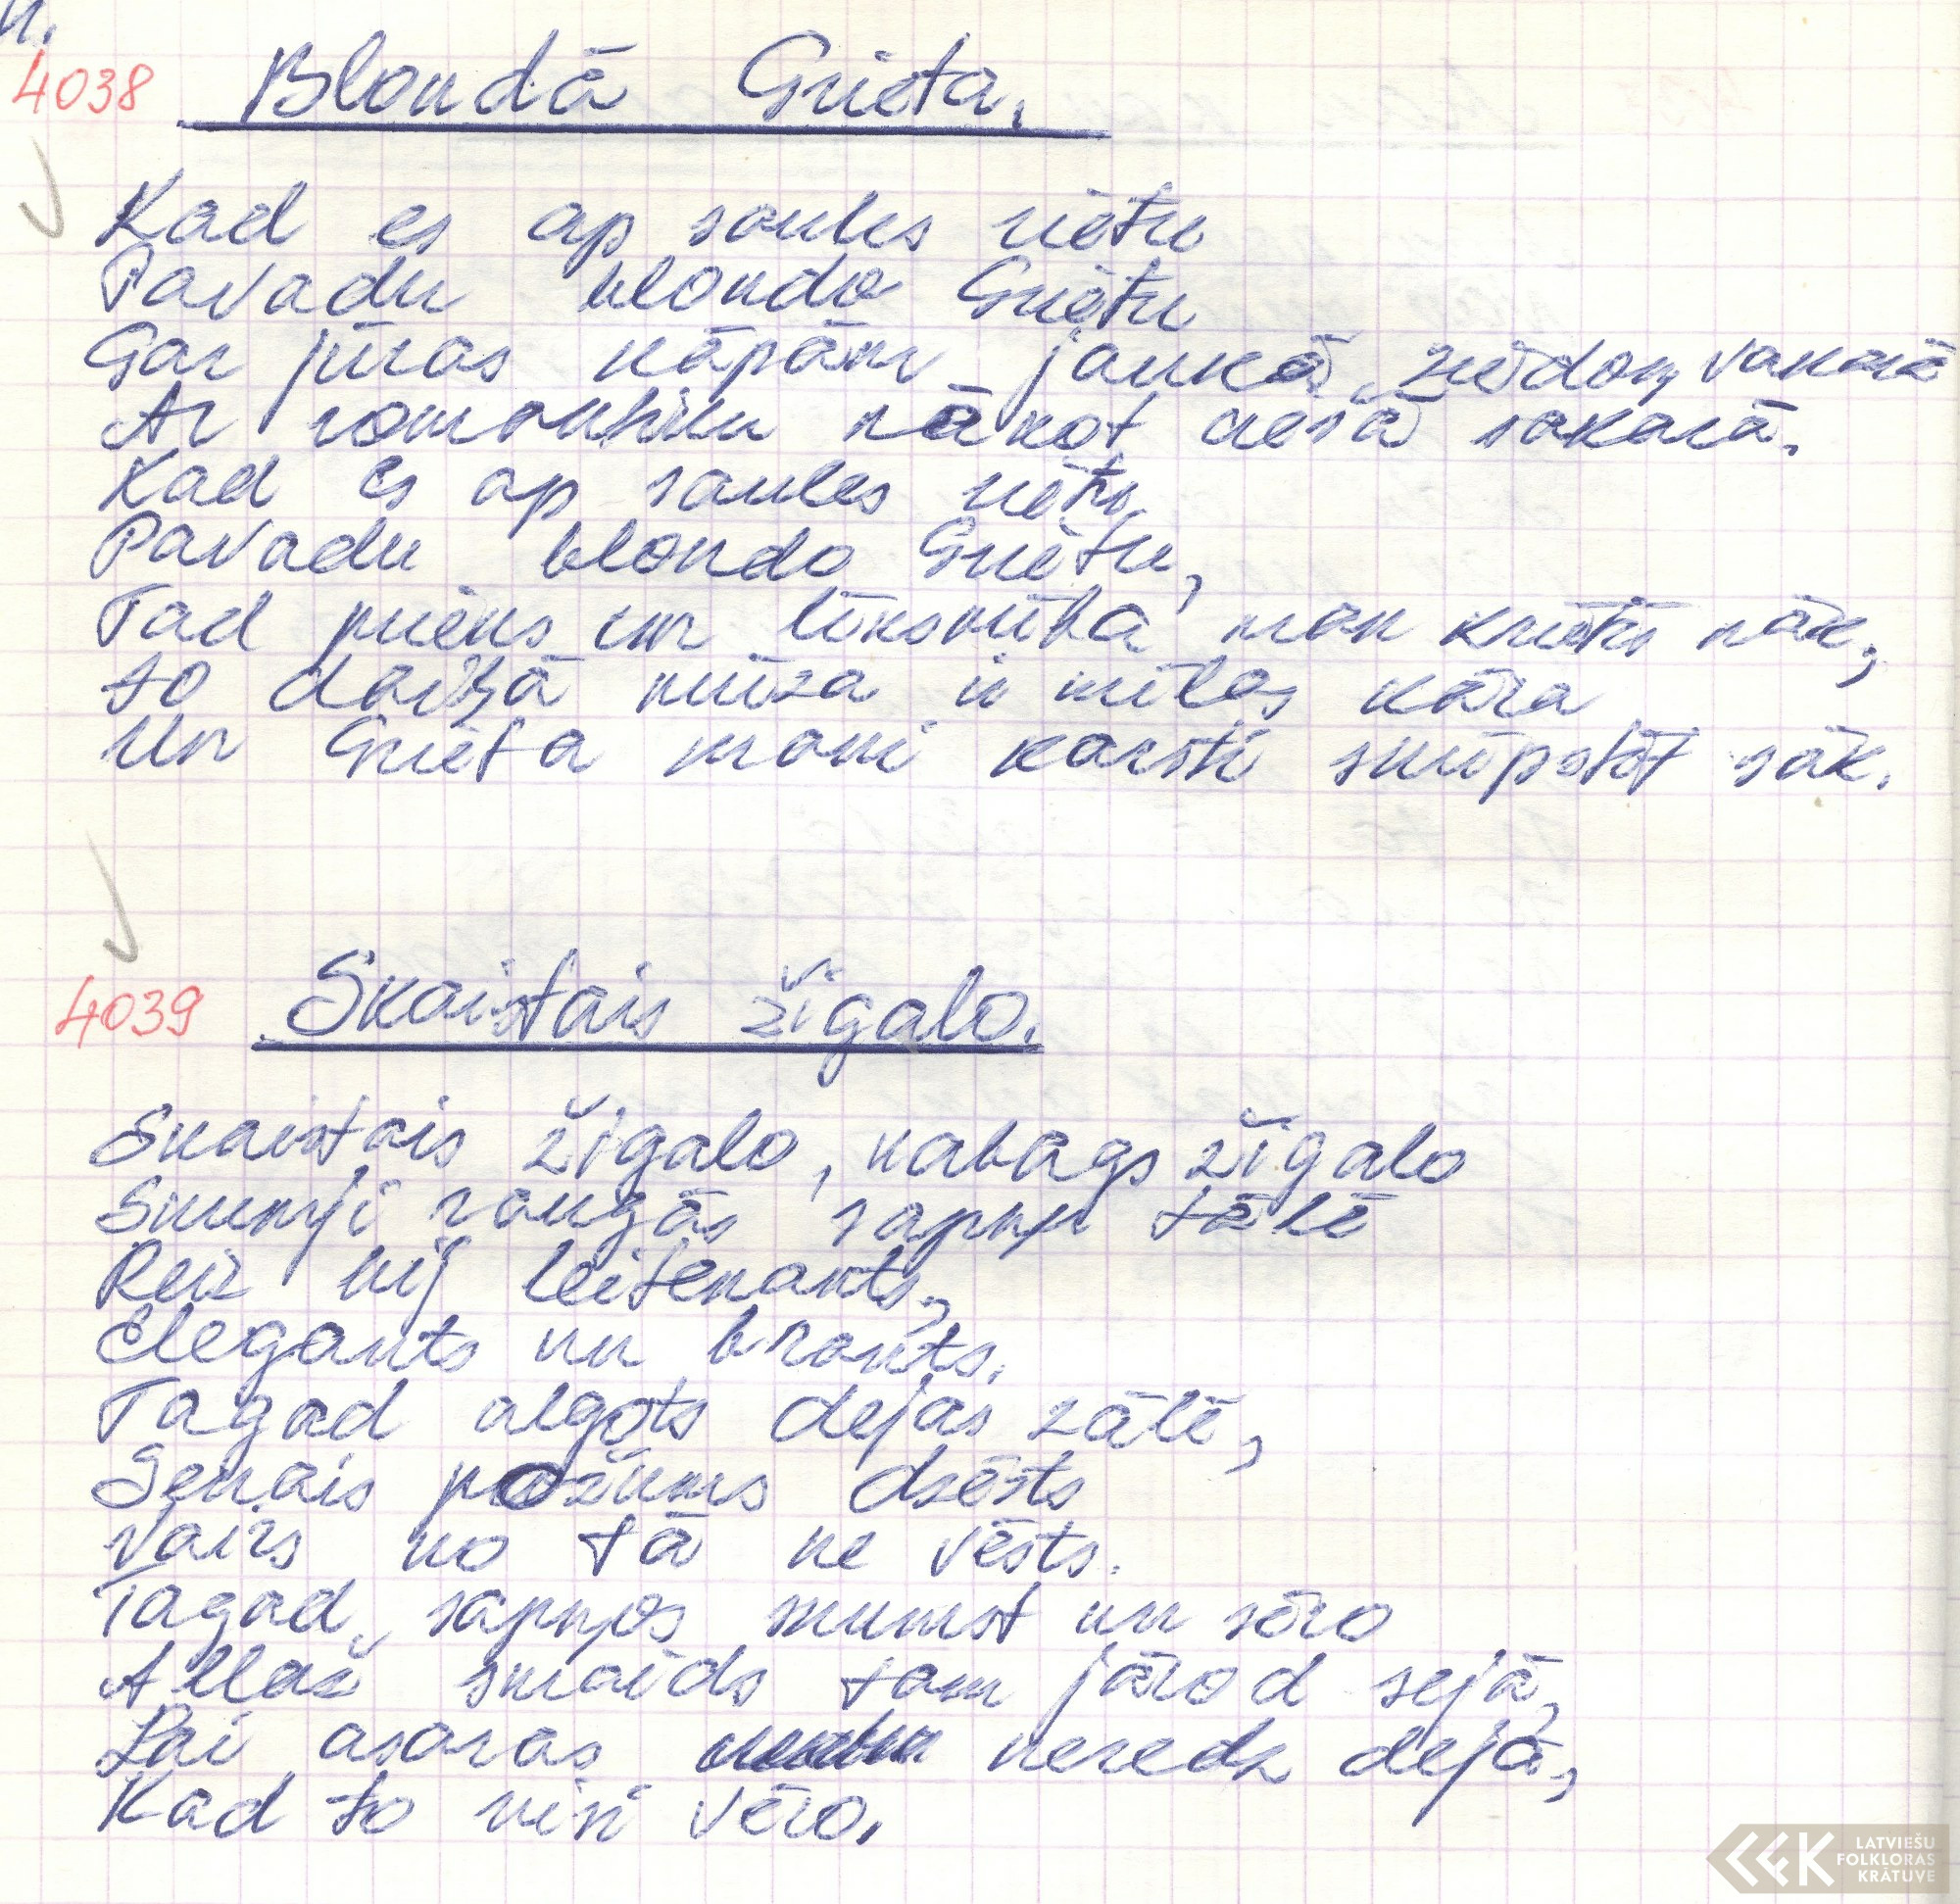 4038 Blondā Grieta.
Kad es ap saules rietu
Pavadu blondo Grietu
Gar jūras kāpām jaukā ziedoņvakarā
Ar romantiku nākot ciešā sakarā.
Kad es ap saules rietu
Pavadu blondo Grietu,
Tad prieks un līksmība man krūtīs nāk,
to daiļā mūza ir mīlas kāra
Un Grieta mani karsti skūpstīt sāk.
4039 Skaistais žigalo.
Skaistais žigalo, nabags žigalo
Skumji raugās sapņu tālē
Reiz bij leitenants,
Elegants un brants.
Tagad algots dejas zālē,
Senais požums dzēsts
Vairs no tā ne vēsts.
Tagad, sapņos skumst un sēro
Allaž smaids tam jārod sejā,
Lai asaras neredz dejā,
Kad to visi vēro.
LATVIEŠU
FOLKLORAS
KRĀTUVE